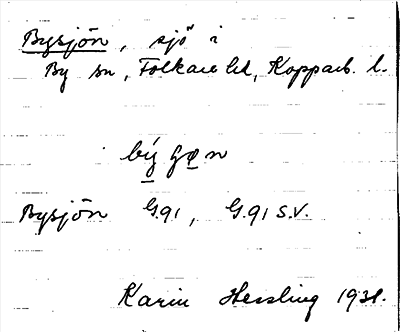 Bysjön, sjö i
By sn, Folkare hd, Kopparb. l.
bý gøn
Bysjön G.91, G.91 S.V.
Karin Hessling 1931.